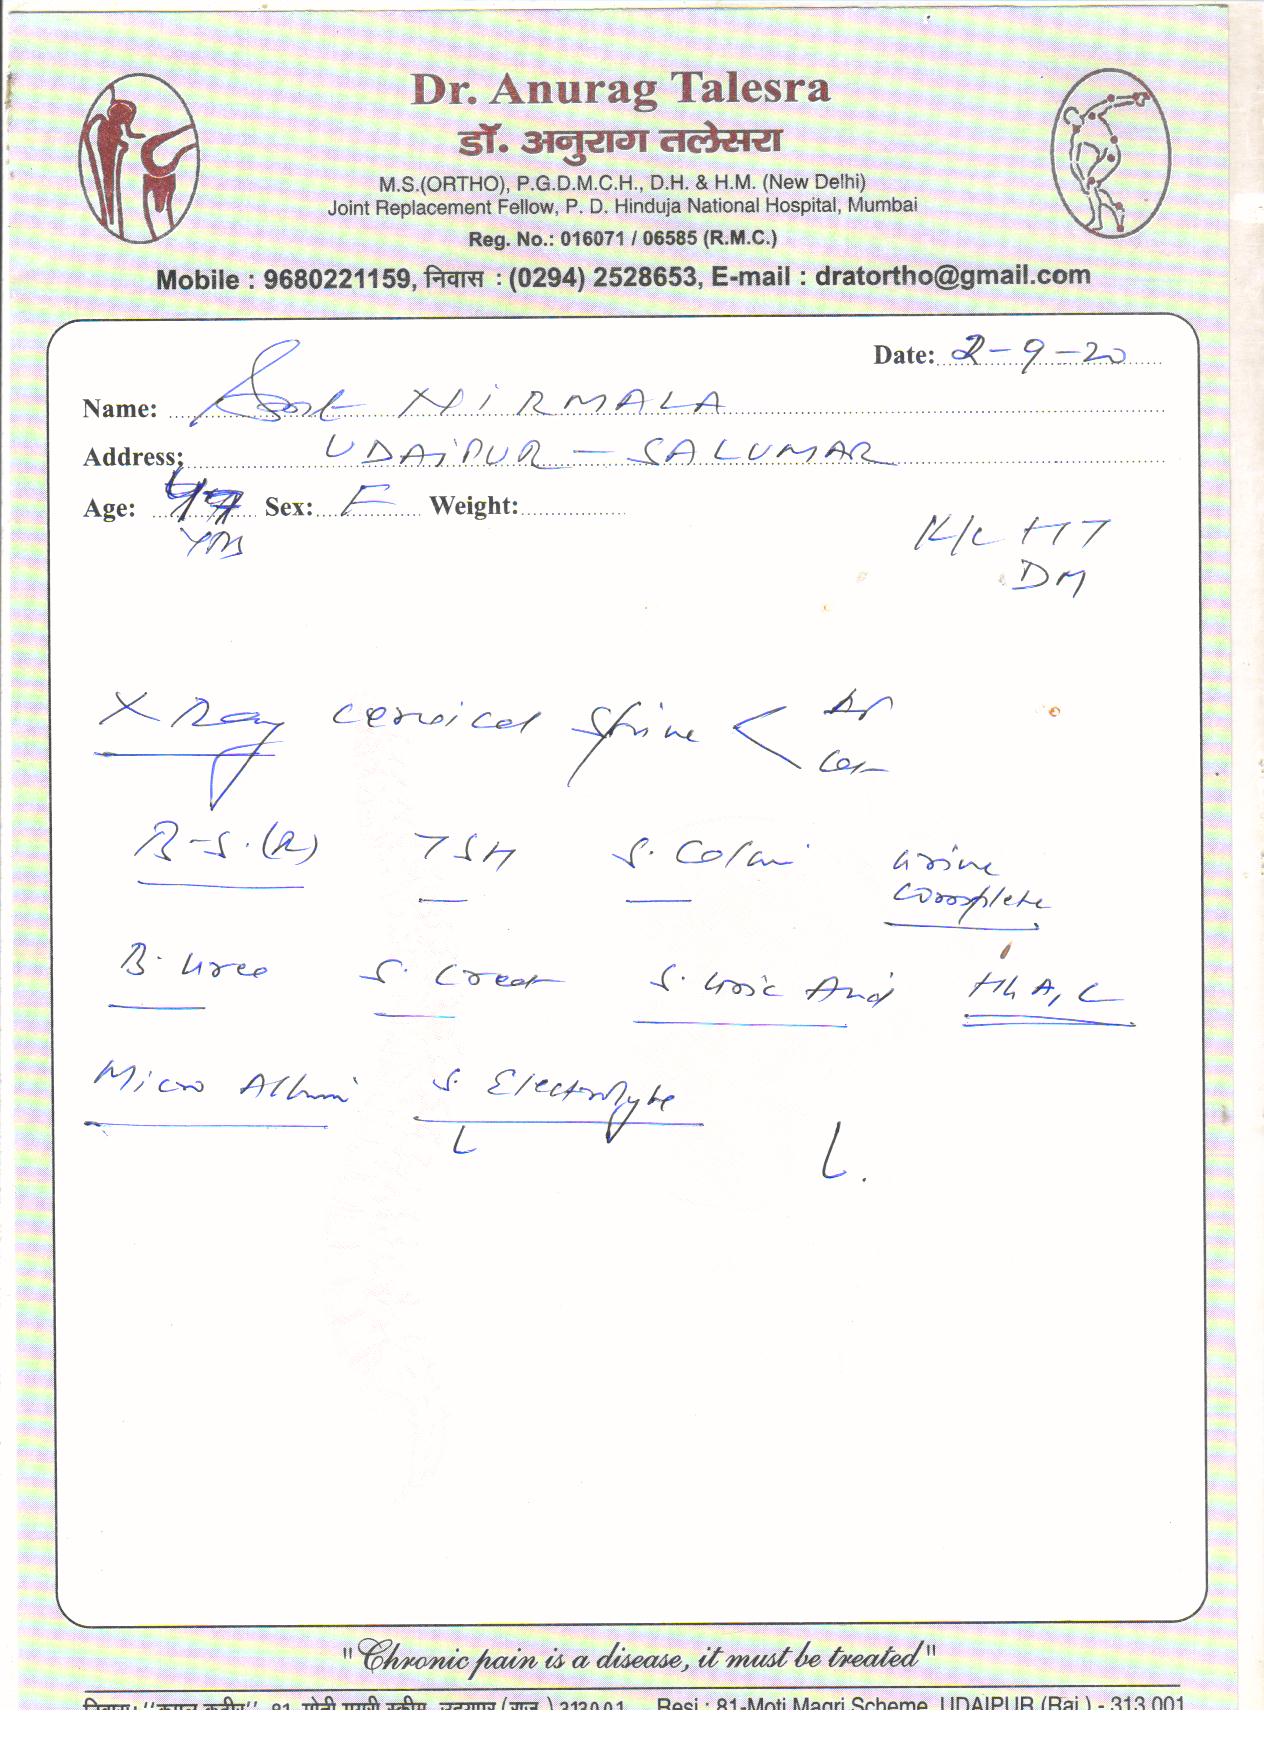 Dr. Anurag Talesra
डॉ. अनुराग तलेसरा
M.S.(ORTHO), P.G.D.M.C.H., D.H. & H.M. (New Delhi)
Joint Replacement Fellow, P. D. Hinduja National Hospital, Mumbai
Reg. No.: 016071 / 06585 (R.M.C.)
Mobile : 9680221159, निवास : (0294) 2528653, E-mail : dratortho@gmail.com
Date: 2-9-20
Name: NIRMALA
Address: UDAIPUR - SALUMAR
Age: 47 Sex: F Weight:
YRS
K/C HT
DM
X Ray cervical spine < AP
Lat
B-S.(R) TSH S. Calci urine
complete
B. urea S. Creat S. Uric Acid HbA1C
Micro Albumi S. Electrolyte
"Chronic pain is a disease, it must be treated"
Resi : 81-Moti Magri Scheme, UDAIPUR (Raj.) - 313 001